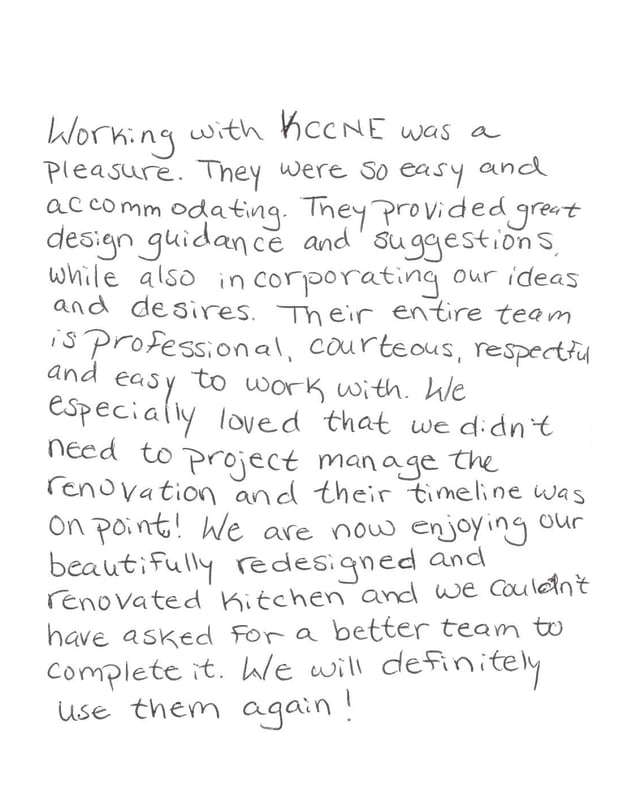 Working with KCCNE was a
pleasure. They were so easy and
accommodating. They provided great
design guidance and suggestions,
while also incorporating our ideas
and desires. Their entire team
is professional, courteous, respectful
and easy to work with. We
especially loved that we didn't
need to project manage the
renovation and their timeline was
on point! We are now enjoying our
beautifully redesigned and
renovated kitchen and we couldn't
have asked for a better team to
complete it. We will definitely
use them again!